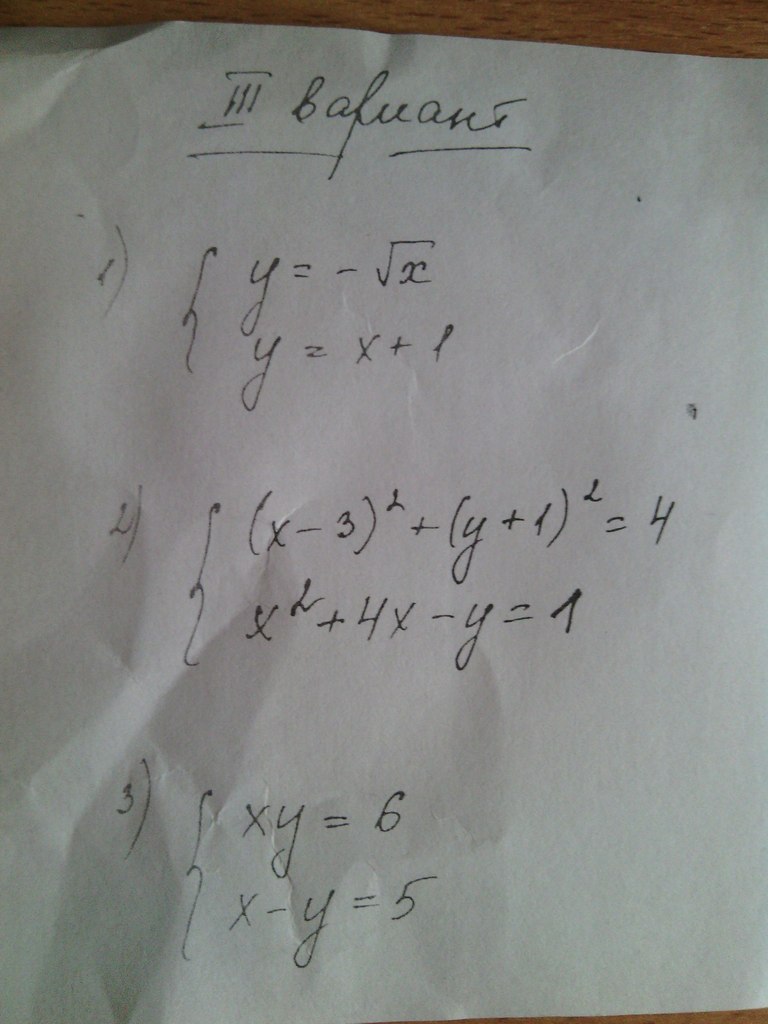 III вариант
1) { y = - √x
y = x + 1
2) { (x - 3)² + (y + 1)² = 4
x² + 4x - y = 1
3) { xy = 6
x - y = 5